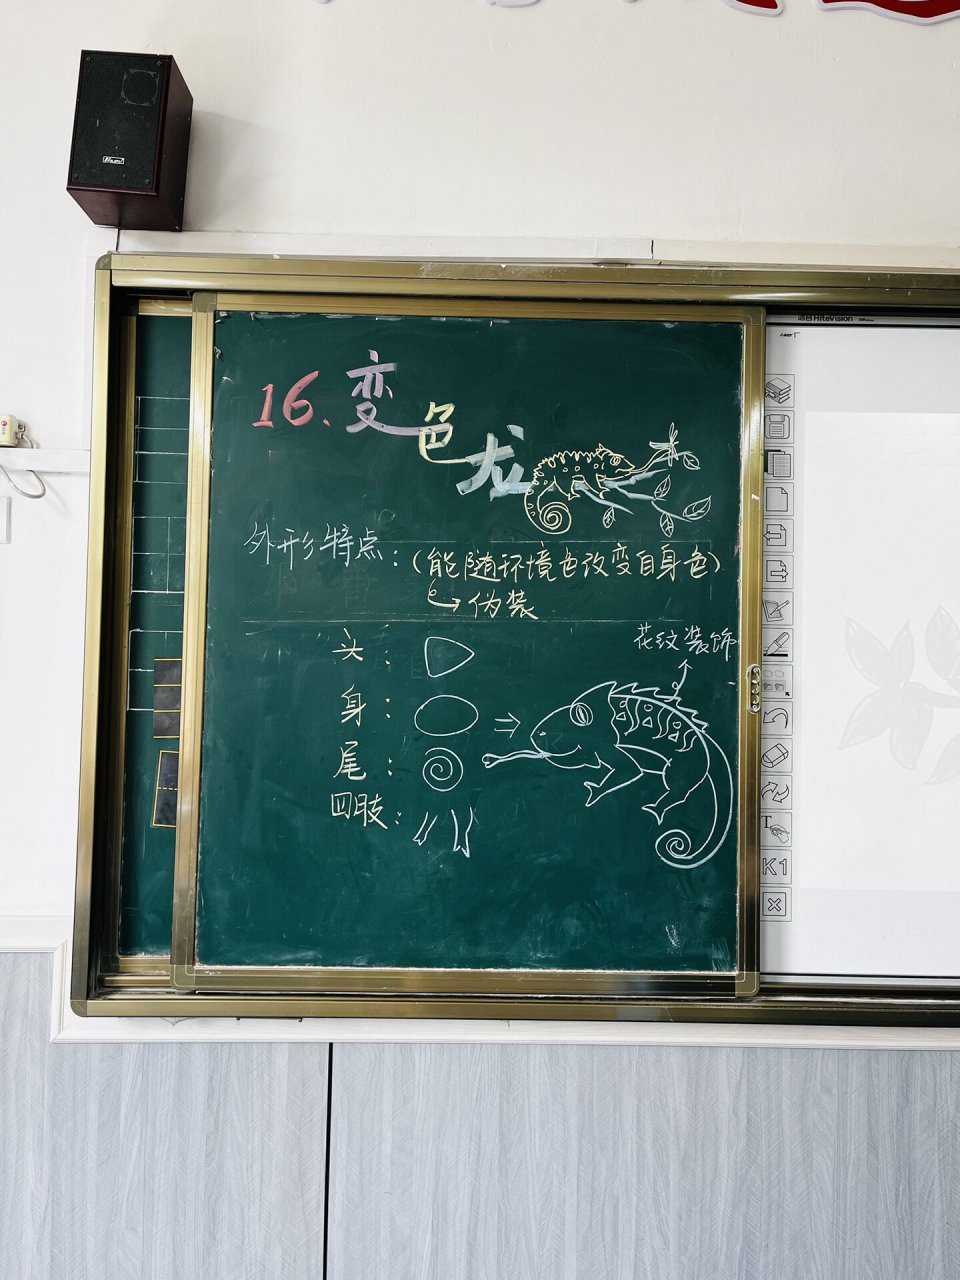 16、变色龙
外形特点：(能随环境色改变自身色)
伪装
花纹装饰
头：
身：
尾：
四肢：
HiteVision
T
K1